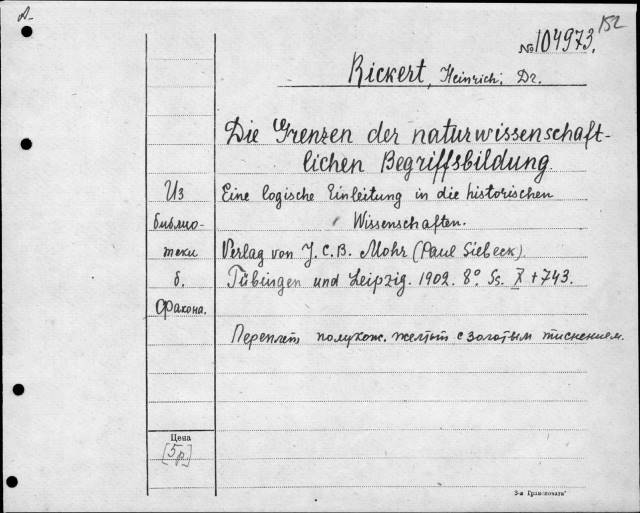 152
№ 104973.
Rickert, Heinrich. Dr.
Die Grenzen der naturwissenschaft-
lichen Begriffsbildung.
Из
библио-
теки
б.
Фракона.
Eine logische Einleitung in die historischen
Wissenschaften.
Verlag von J.C.B. Mohr (Paul Siebeck).
Tübingen und Leipzig. 1902. 8° Ss. X + 743.
Переплет полукож. желтый с золотым тиснением.
Цена
[5 р]
3-я